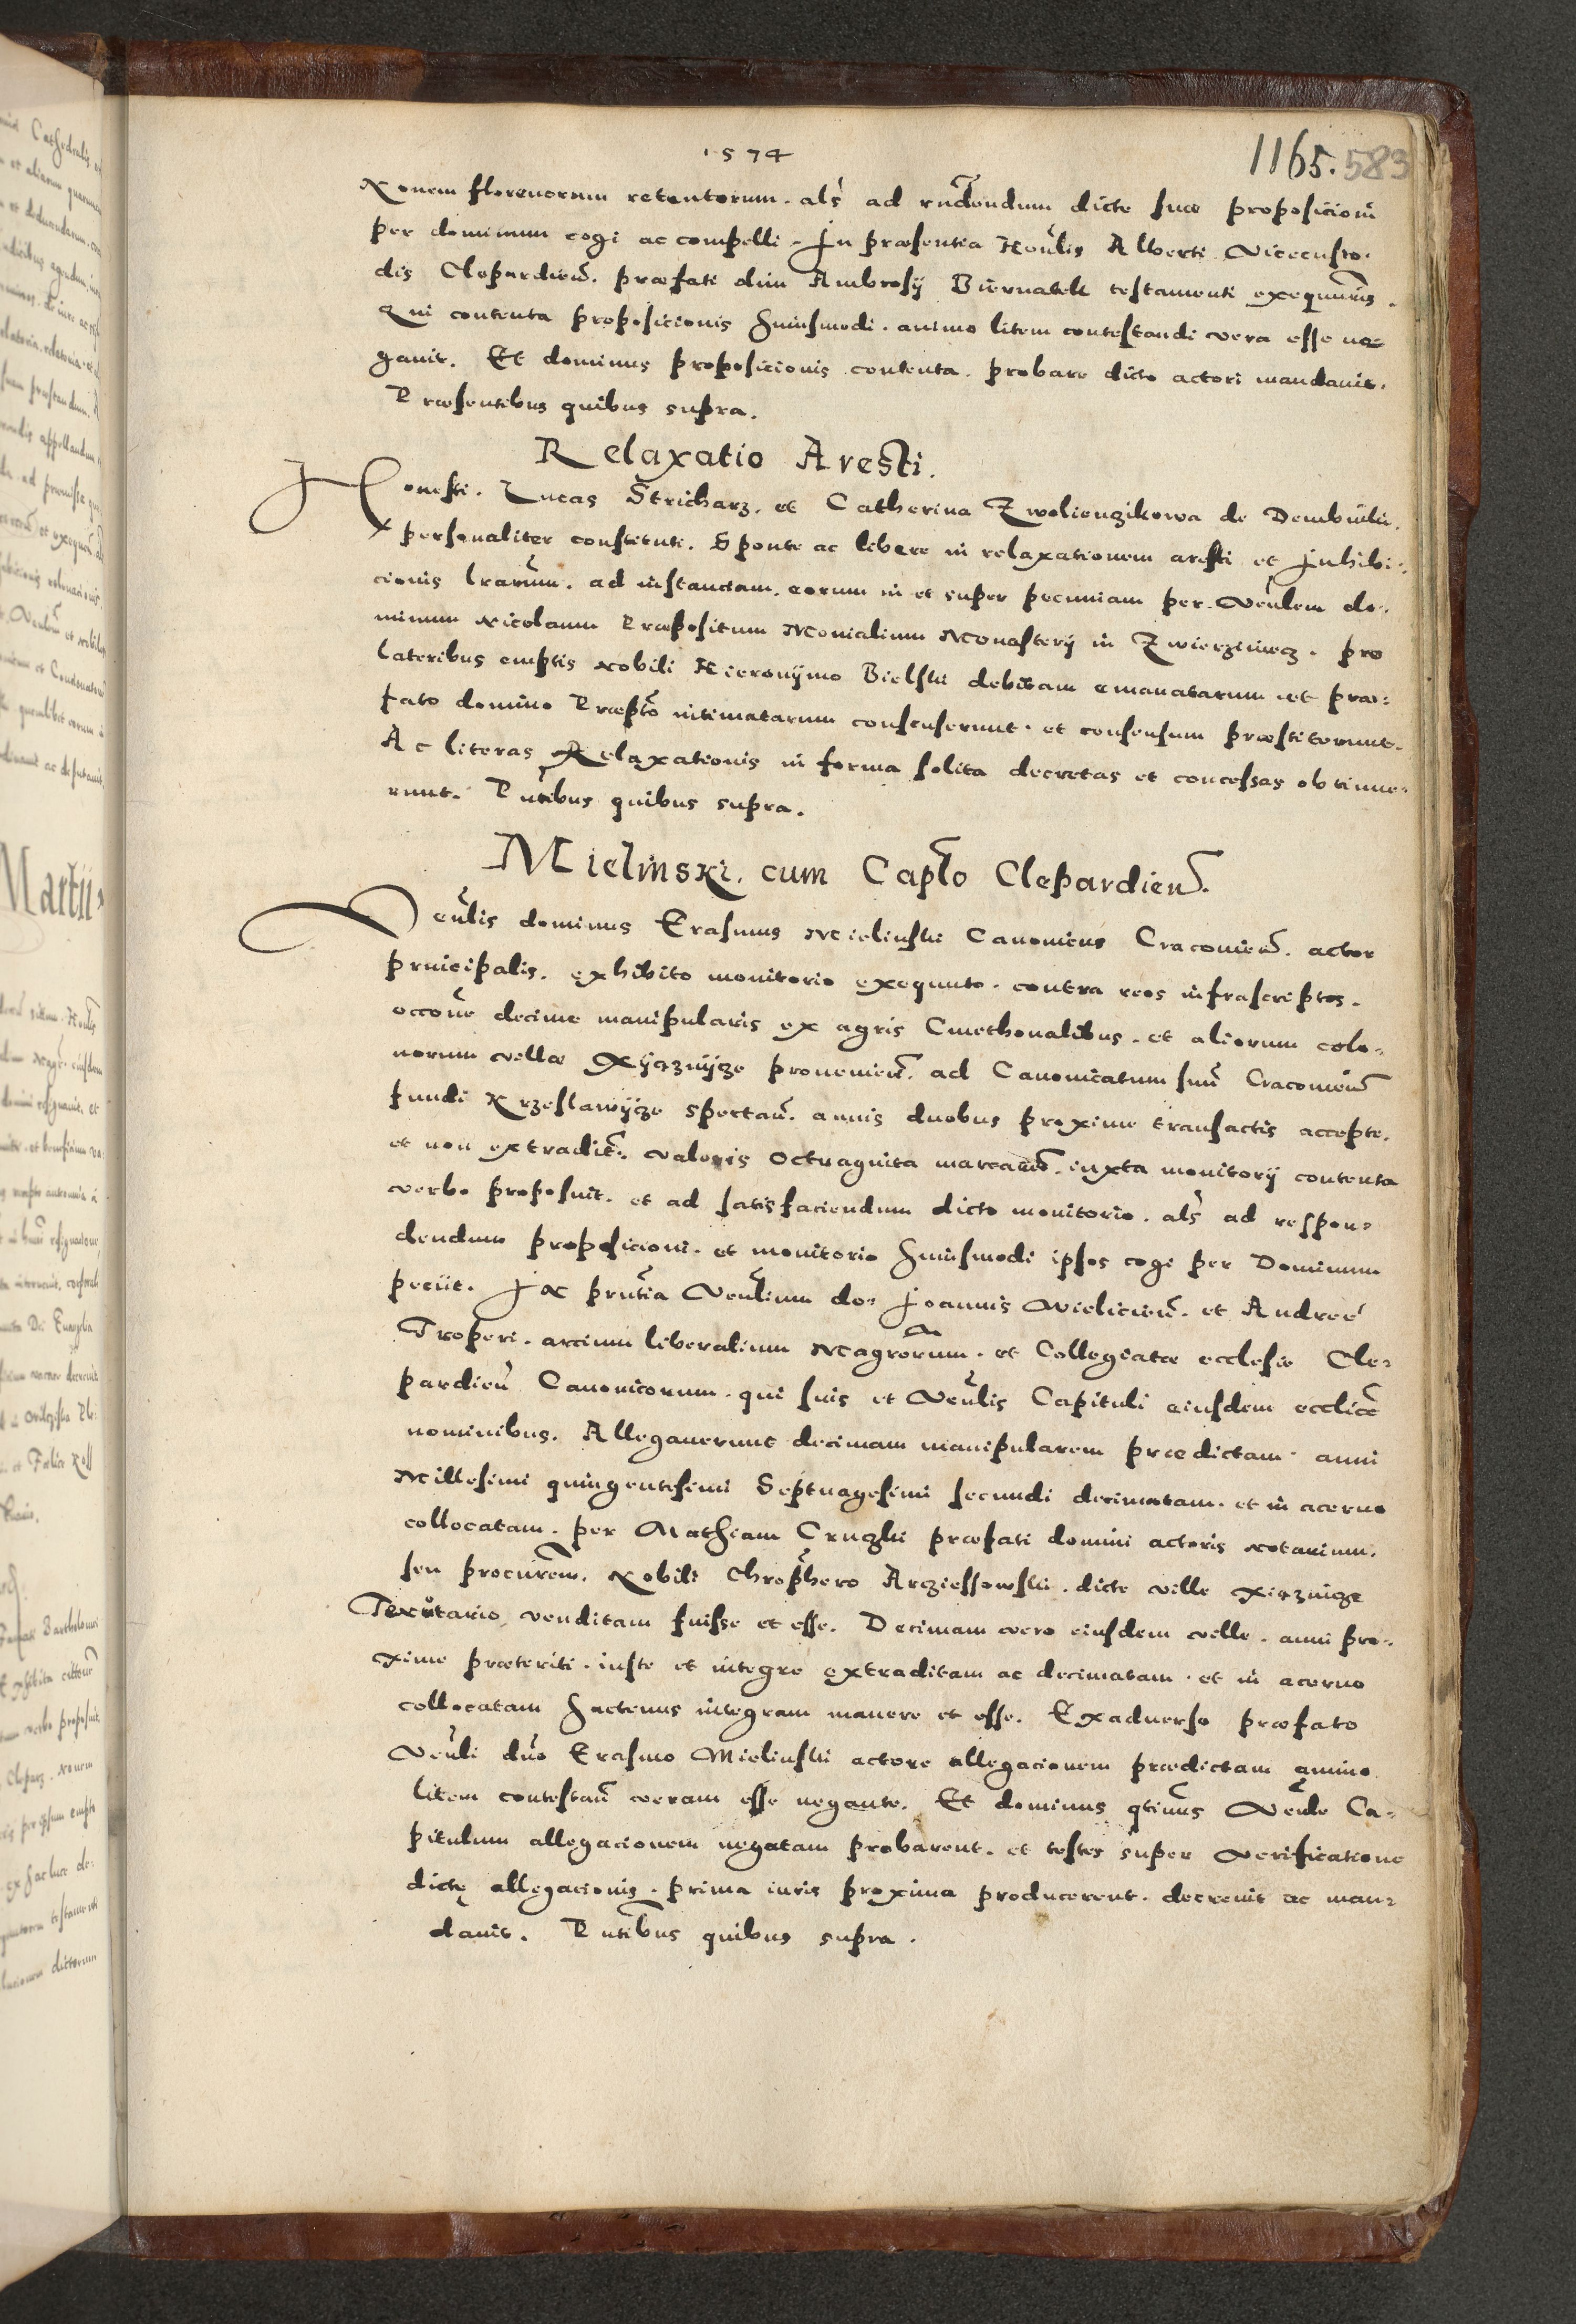 1574
1165. 583
Nouem florenorum retentorum. als ad rndendum dicte suae proposicioni
per dominum cogi ac compelli. In praesentia Honlis Alberti Vicecusto-
dis Clepardien. praefati dni Ambrosij Biernatek testamenti exequutoris.
Qui contenta proposicionis huiusmodi. animo litem contestandi vera esse ne-
gauit. Et dominus proposicionis contenta. probare dicto actori mandauit.
Praesentibus quibus supra.
Relaxatio Aresti.
Honesti. Lucas Stricharz. et Catherina Zwolienzikowa de Dembniki.
personaliter constituti. Sponte ac libere in relaxationem aresti et Inhibi-
cionis lrarum. ad instanciam. eorum in et super pecuniam per Venlem do-
minum Nicolaum Praepositum Monialium Monasterij in Zwierziniecz. pro
lateribus emptis Nobili Hieronymo Bielski debitam emanatarum et prae-
fato domino Praepto intimatarum consenserunt. et consensum praestiterunt.
Ac literas Relaxationis in forma solita decretas et concessas obtinue-
runt. Pntibus quibus supra.
Mielinski. cum Caplo Clepardien.
Venlis dominus Erasmus Mielinski Canonicus Cracouien. actor
principalis. exhibito monitorio exequuto. contra reos infrascriptos.
occone decime manipularis ex agris Cmethonalibus. et aliorum colo-
norum villae Xyąznijcze prouenien. ad Canonicatum suum Cracouien
fundi Krzeslawijcze spectan. annis duobus proxime transactis accepte.
et non extradite. valoris octuaginta marcarum. iuxta monitorij contenta
verbo proposuit. et ad satisfaciendum dicto monitorio. als ad respon-
dendum proposicioni. et monitorio huiusmodi ipsos cogi per Dominum
peciit. In prntia Venlium do. Joannis Wielicien. et Andree
Troperi. arcium liberalium Magrorum. et Collegiatae ecclesie Cle-
pardien Canonicorum. qui suis et Venlis Capituli eiusdem ecclie
nominibus. Allegauerunt decimam manipularem praedictam anni
Millesimi quingentesimi Septuagesimi secundi decimatam. et in aceruo
collocatam. per Mathiam Cruczki praefati domini actoris Notarium.
seu procurem. Nobili Chrophero Arcziessowski. dicte ville Xiąznicze
Tenutario venditam fuisse et esse. Decimam vero eiusdem ville. anni pro-
xime praeteriti. iuste et integre extraditam ac decimatam. et in aceruo
collocatam hactenus integram manere et esse. Exaduerso praefato
Venli dno Erasmo Mielinski actore allegacionem praedictam animo
litem contestan veram esse negante. Et dominus qtinus Venle Ca-
pitulum allegacionem negatam probarent. et testes super verificatione
dictę allegacionis. prima iuris proxima producerent. decreuit ac man-
dauit. Pntibus quibus supra.